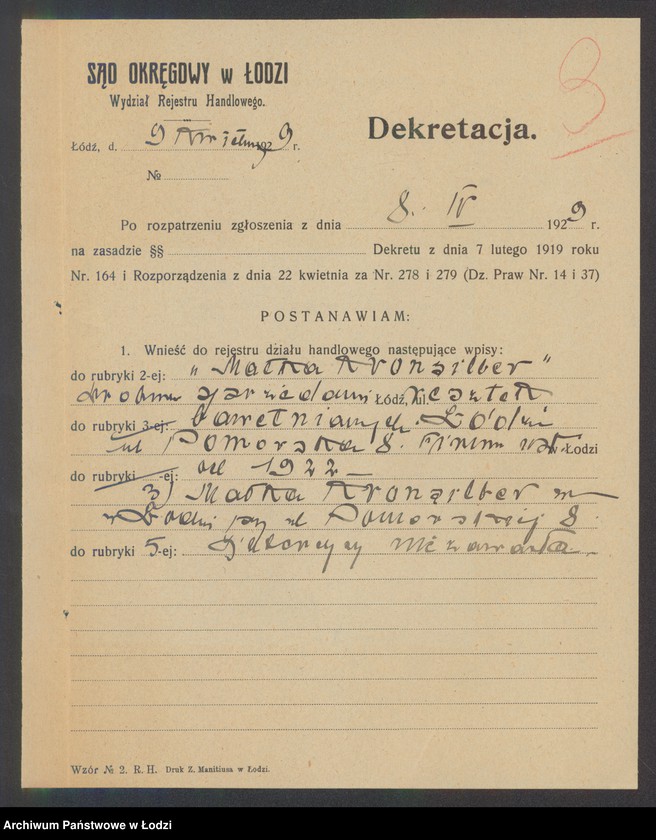 SĄD OKRĘGOWY w ŁODZI
Wydział Rejestru Handlowego.
3
Dekretacja.
Łódź, d. 9 Kwietnia 1929 r.
№
Po rozpatrzeniu zgłoszenia z dnia 8. IV 1929 r.
na zasadzie §§ Dekretu z dnia 7 lutego 1919 roku
Nr. 164 i Rozporządzenia z dnia 22 kwietnia za Nr. 278 i 279 (Dz. Praw Nr. 14 i 37)
POSTANAWIAM:
1. Wnieść do rejestru działu handlowego następujące wpisy:
do rubryki 2-ej: "Matka Kronzilber"
drobna sprzedaż Łódź, ul. resztek
do rubryki 3-ej: bawełnianych. Łódź
ul Pomorska 8. Firma istn. w Łodzi
do rubryki -ej: od 1922 —
3) Matka Kronzilber zam
w Łodzi przy ul Pomorskiej 8
do rubryki 5-ej: Intercyzy nie zawarła
Wzór № 2. R. H. Druk Z. Manitiusa w Łodzi.
Archiwum Państwowe w Łodzi